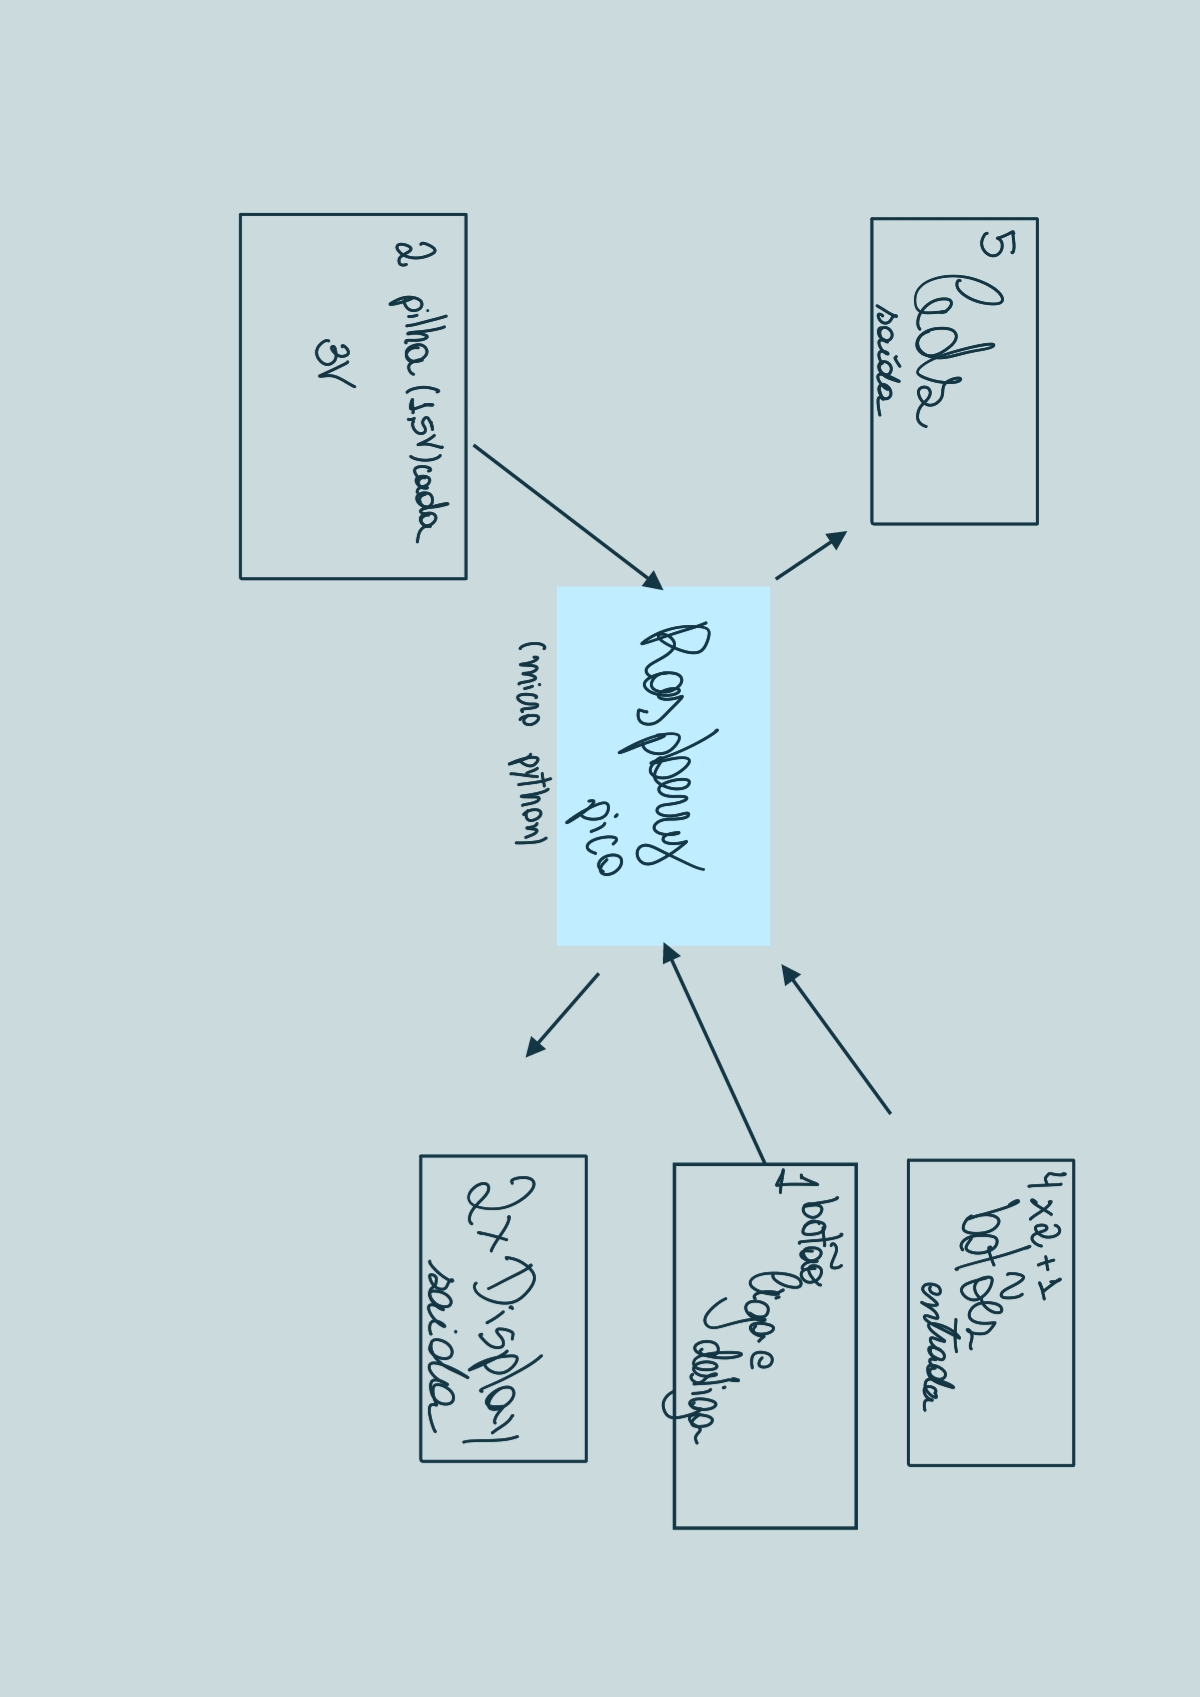 5
Leds
saída
4x2+1
botões
entrada
1 botão
liga e
desliga
Raspberry
pico
(micro python)
2x Display
saida
2 pilha (1,5V) cada
3V